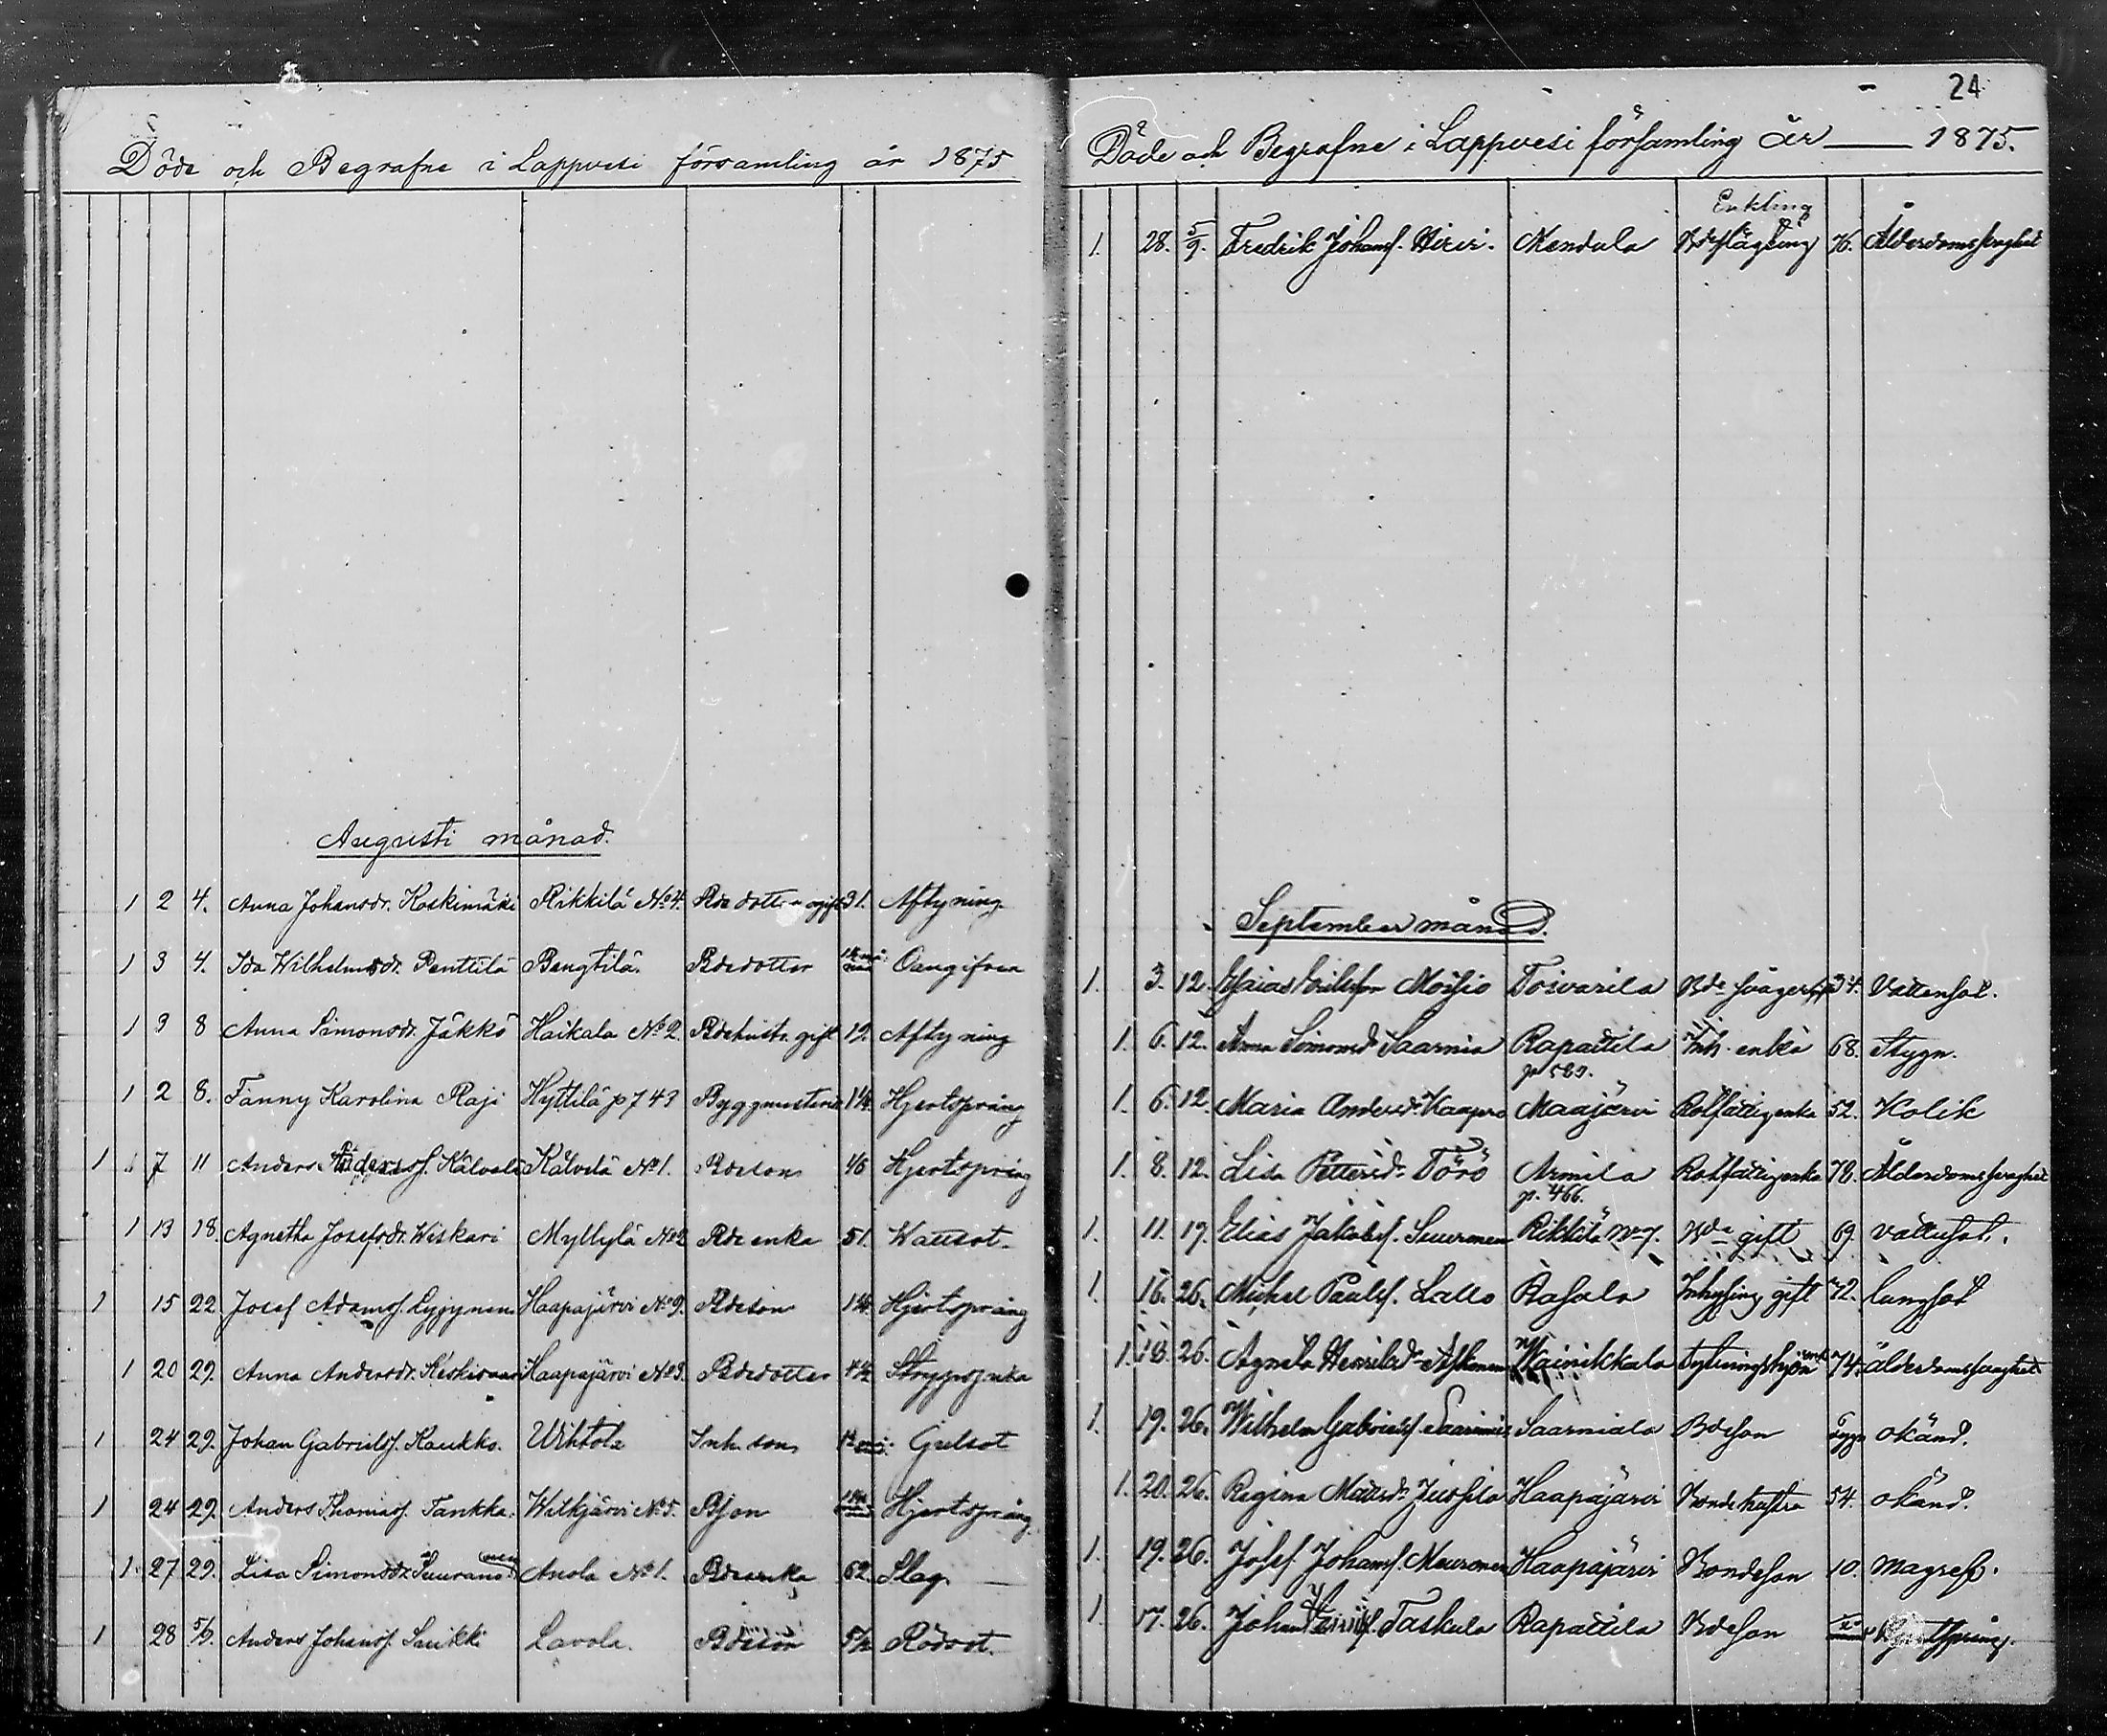 Döde och Begrafne i Lappvesi församling år 1875
Augusti månad.
1 2 4. Anna Johansdr. Koskimäki Rikkilä No 4. Bde dotter ogift 31. Aftyning
1 3 4. Ida Wilhelmsdr. Penttilä Bengtilä. Bdedotter Oangifven
1 3 8 Anna Simonsdr. Jäkkö Haikala No 2. Bdehustr. gift 19. Aftyning
1 2 8. Fanny Karolina Raji Hyttilä p 743 Hjertsprång
1 7 11 Anders Anderss. Kälvelä Kälvelä No 1. Bdeson Hjertsprång
1 13 18. Agnetha Josefsdr. Wiskari Myllylä No 2 Bde enka 51. Wattsot.
1 15 22. Josef Adamss. Haapajärvi No 9. Bdeson Hjertsprång
1 20 29. Anna Andersdr. Keskisaari Haapajärvi No 3. Bdedotter Strypsjuka
1 24 29. Johan Gabrielss. Kaukko. Wihtola Inh. son Gulsot
1 24 29. Anders Thomass. Tankka. Witkjärvi No 5. Bson Hjertsprång
1. 27 29. Lisa Simonsdr. Suuronen Anola No 1. Bdeenka 62. Slag.
1 28 5/9. Anders Johanss. Saikki Lavola. Bdeson Rödsot.
24
Döde och Begrafne i Lappvesi församling år 1875.
Enkling
1. 28. 5/9. Fredrik Johanss. Hirvi. Kendula 76. Ålderdomssvaghet
September månad.
1. 3. 12. Esaias Mössio Toivarila Bde svåger 34. Vattensot.
1. 6. 12. Anna Simonsd. Saarnia Rapattila Inh. enka 68. Stygn.
p 589.
1. 6. 12 Maria Andersd. Kaapro Maajärvi Rotfattigenka 52. Kolik
1. 8. 12. Lisa Pettersd. Törö Armila Rotfattigenka 78. Ålderdomssvaghet
p. 466.
1. 11. 19. Elias Jakobs. Suuronen Rikkilä No 7. Bde gift 69. Vattusot.
1. 16. 26. Mickel Pauls. Lallo Rasala Inhysing gift 72. Lungsot
1. 18. 26. Agneta Henriksdr. Wainikkala 74. Ålderdomssvaghet
1. 19. 26. Wilhelm Gabriels. Saarnia Saarniala Bdeson okänd.
1. 20. 26. Regina Matsdr. Jussila Haapajärvi Bondehustru 54. okänd.
1. 19. 26. Josef Johans. Meuronen Haapajärvi Bondeson 10. Magref.
1. 17. 26. Johan Taskula Rapattila Bdeson Hjertsprång.